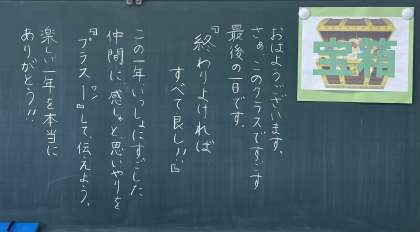 おはようございます。
さぁ、このクラスですごす
最後の一日です。
『終わりよければ
すべて良し!!』
この一年いっしょにすごした
仲間に、感しゃと思いやりを
『プラス一』して伝えよう。
ワン
楽しい一年を本当に
ありがとう!!
宝箱